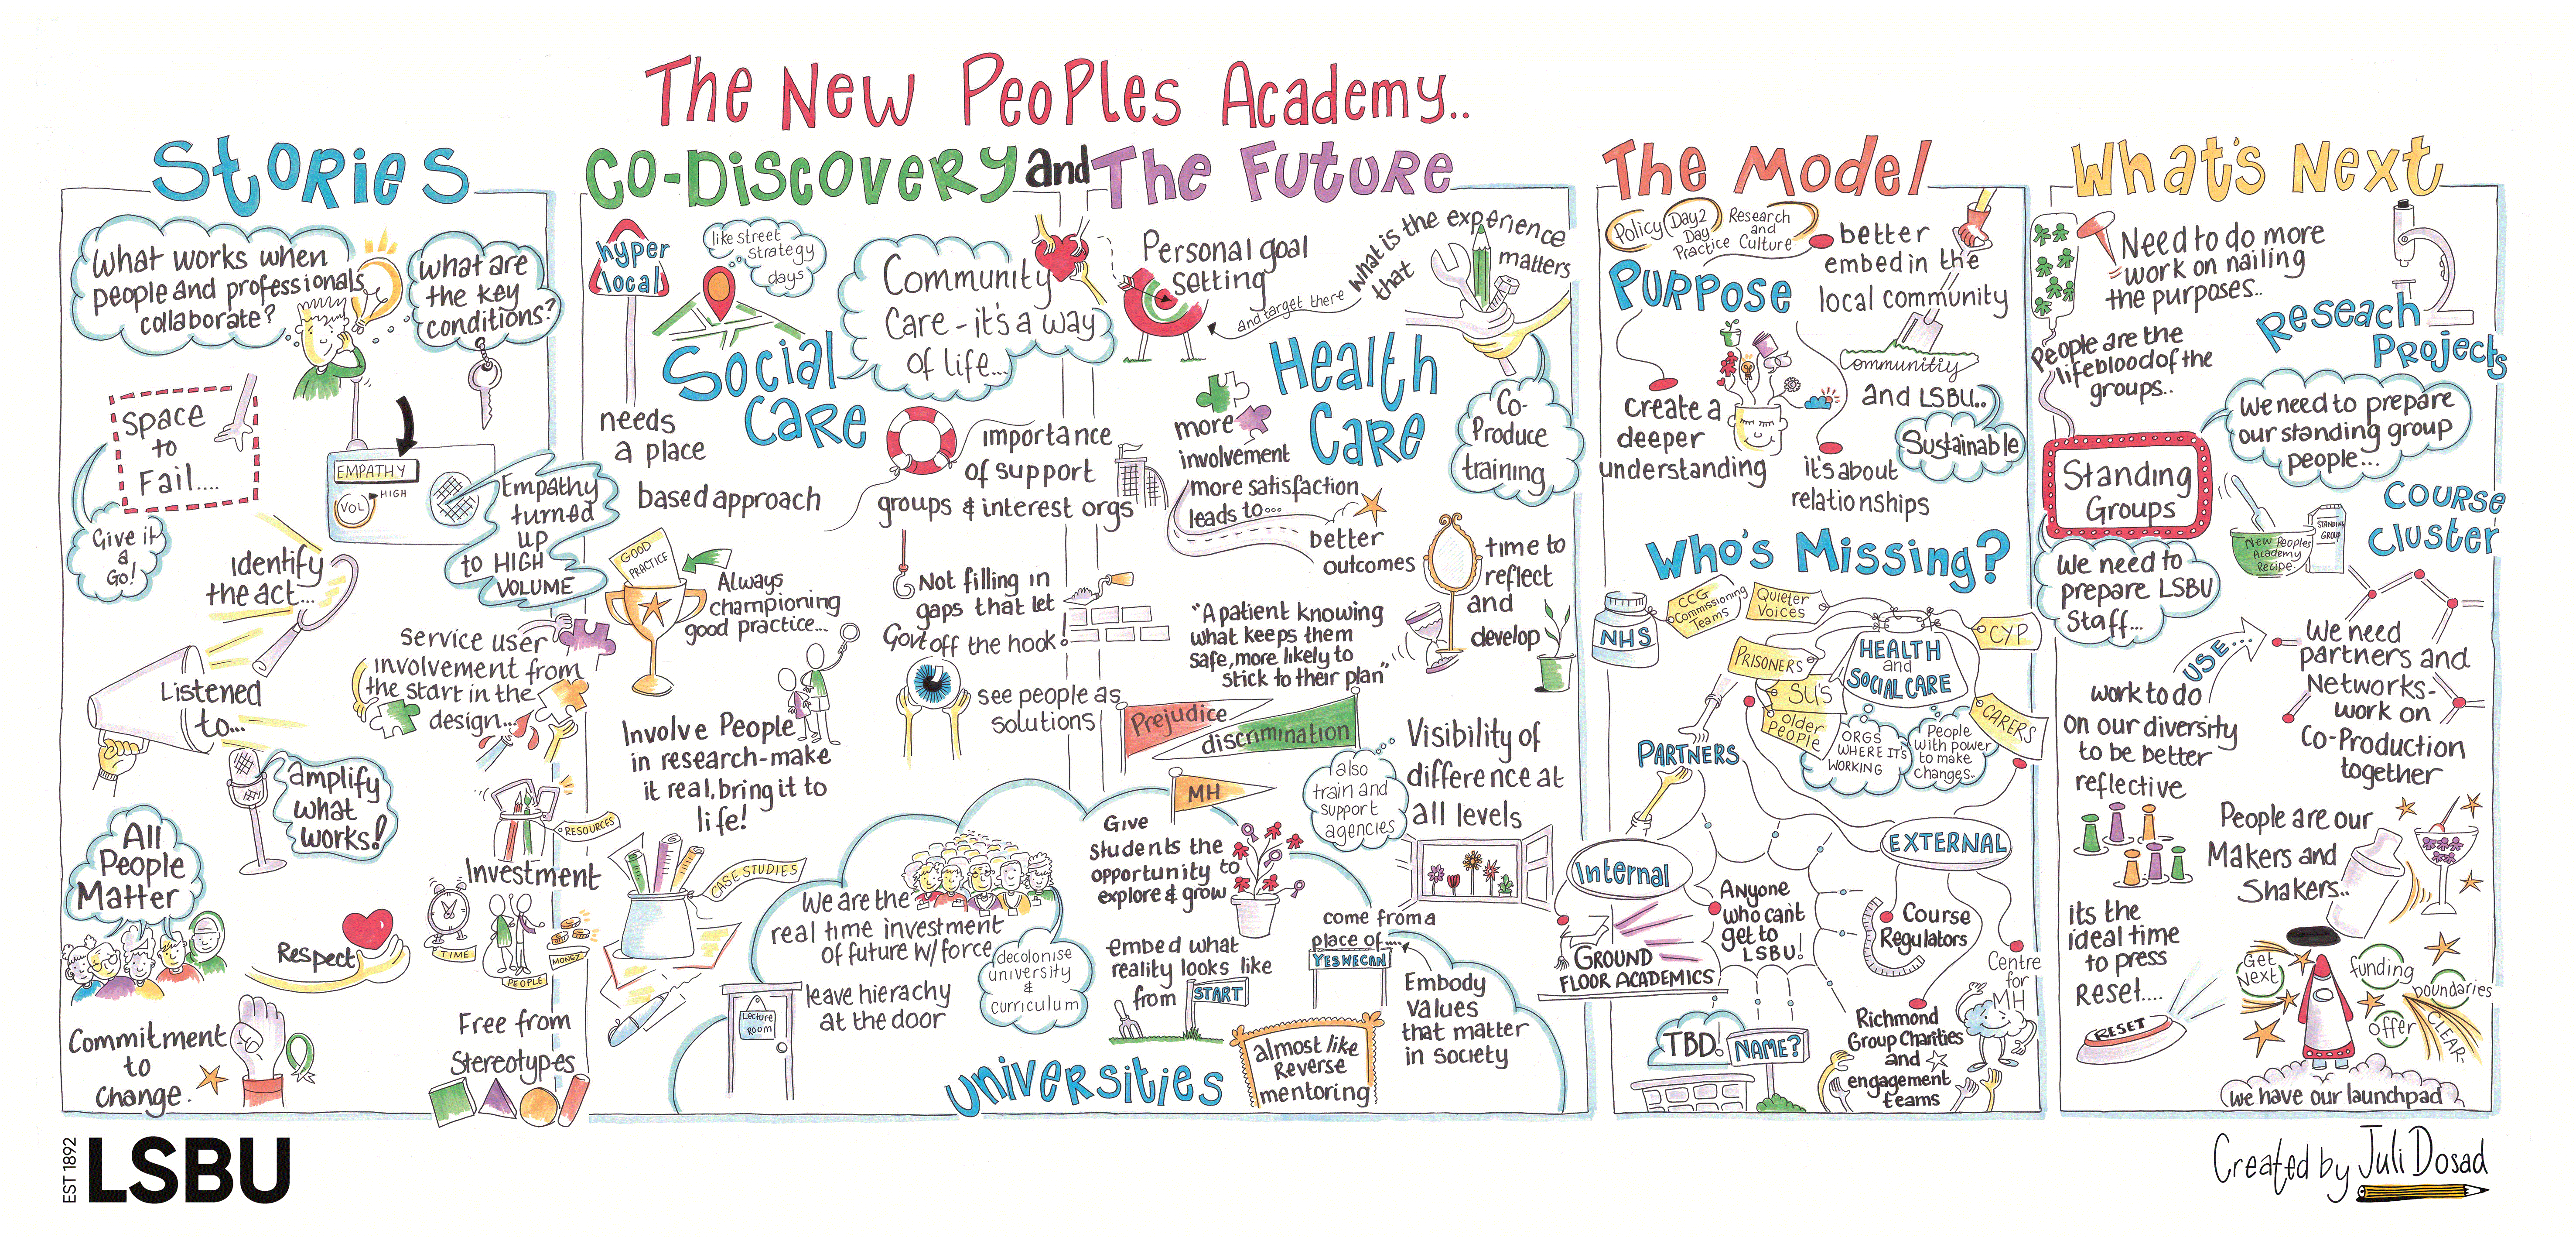 The New Peoples Academy..
Stories
What works when
people and professionals
collaborate?
what are
the key
conditions?
Space
to
Fail....
Give it
a
Go!
EMPATHY
VOL
HIGH
Empathy
turned
up
to HIGH
VOLUME
Identify
the act...
Listened
to...
service user
involvement from
the start in the
design...
amplify
what
works!
All
People
Matter
RESOURCES
Investment
TIME
PEOPLE
MONEY
Respect
Commitment
to
change.
Free from
Stereotypes
Co-Discovery and The Future
hyper
local
like street
strategy
days
Social
Care
needs
a place
based approach
Community
Care - it's a way
of life...
importance
of support
groups & interest orgs
GOOD
PRACTICE
Always
championing
good practice...
Not filling in
gaps that let
Govt off the hook!
see people as
solutions
Involve People
in research-make
it real, bring it to
life!
CASE STUDIES
Personal goal
setting
and target there
what is the experience
that
matters
Health
Care
Co-
Produce
training
more
involvement
more satisfaction
leads to...
better
outcomes
time to
reflect
and
develop
"A patient knowing
what keeps them
safe, more likely to
stick to their plan"
Prejudice
discrimination
MH
also
train and
support
agencies
Visibility of
difference at
all levels
We are the
real time investment
of future w/force
decolonise
university
&
curriculum
Lecture
Room
leave hierachy
at the door
Give
students the
opportunity to
explore & grow
embed what
reality looks like
from
START
come from a
place of....
YES WE CAN
Embody
values
that matter
in society
almost like
Reverse
mentoring
Universities
The Model
Policy
Day 2
Day
Practice
Research
and
Culture
Purpose
better
embed in the
local community
Communitiy
and LSBU..
Sustainable
create a
deeper
understanding
it's about
relationships
Who's Missing?
NHS
CCG
Commissioning
Teams
Quieter
Voices
CYP
PRISONERS
SU'S
older
People
HEALTH
and
SOCIAL CARE
CARERS
ORGS
WHERE IT'S
WORKING
People
with power
to make
changes..
PARTNERS
Internal
EXTERNAL
GROUND
FLOOR ACADEMICS
Anyone
who can't
get to
LSBU!
Course
Regulators
Centre
for
MH
TBD!
NAME?
Richmond
Group Charities
and
engagement
teams
What's Next
Need to do more
work on nailing
the purposes..
People are the
lifeblood of the
groups..
Reseach
Projects
We need to prepare
our standing group
people...
Standing
Groups
New Peoples
Academy
Recipe
STANDING
GROUP
Course
Cluster
We need to
prepare LSBU
Staff...
USE...
work to do
on our diversity
to be better
reflective
We need
partners and
Networks-
work on
Co-Production
together
People are our
Makers and
Shakers..
its the
ideal time
to press
Reset....
RESET
Get
Next
funding
boundaries
offer
CLEAR
we have our launchpad
EST 1892
LSBU
Created by Juli Dosad